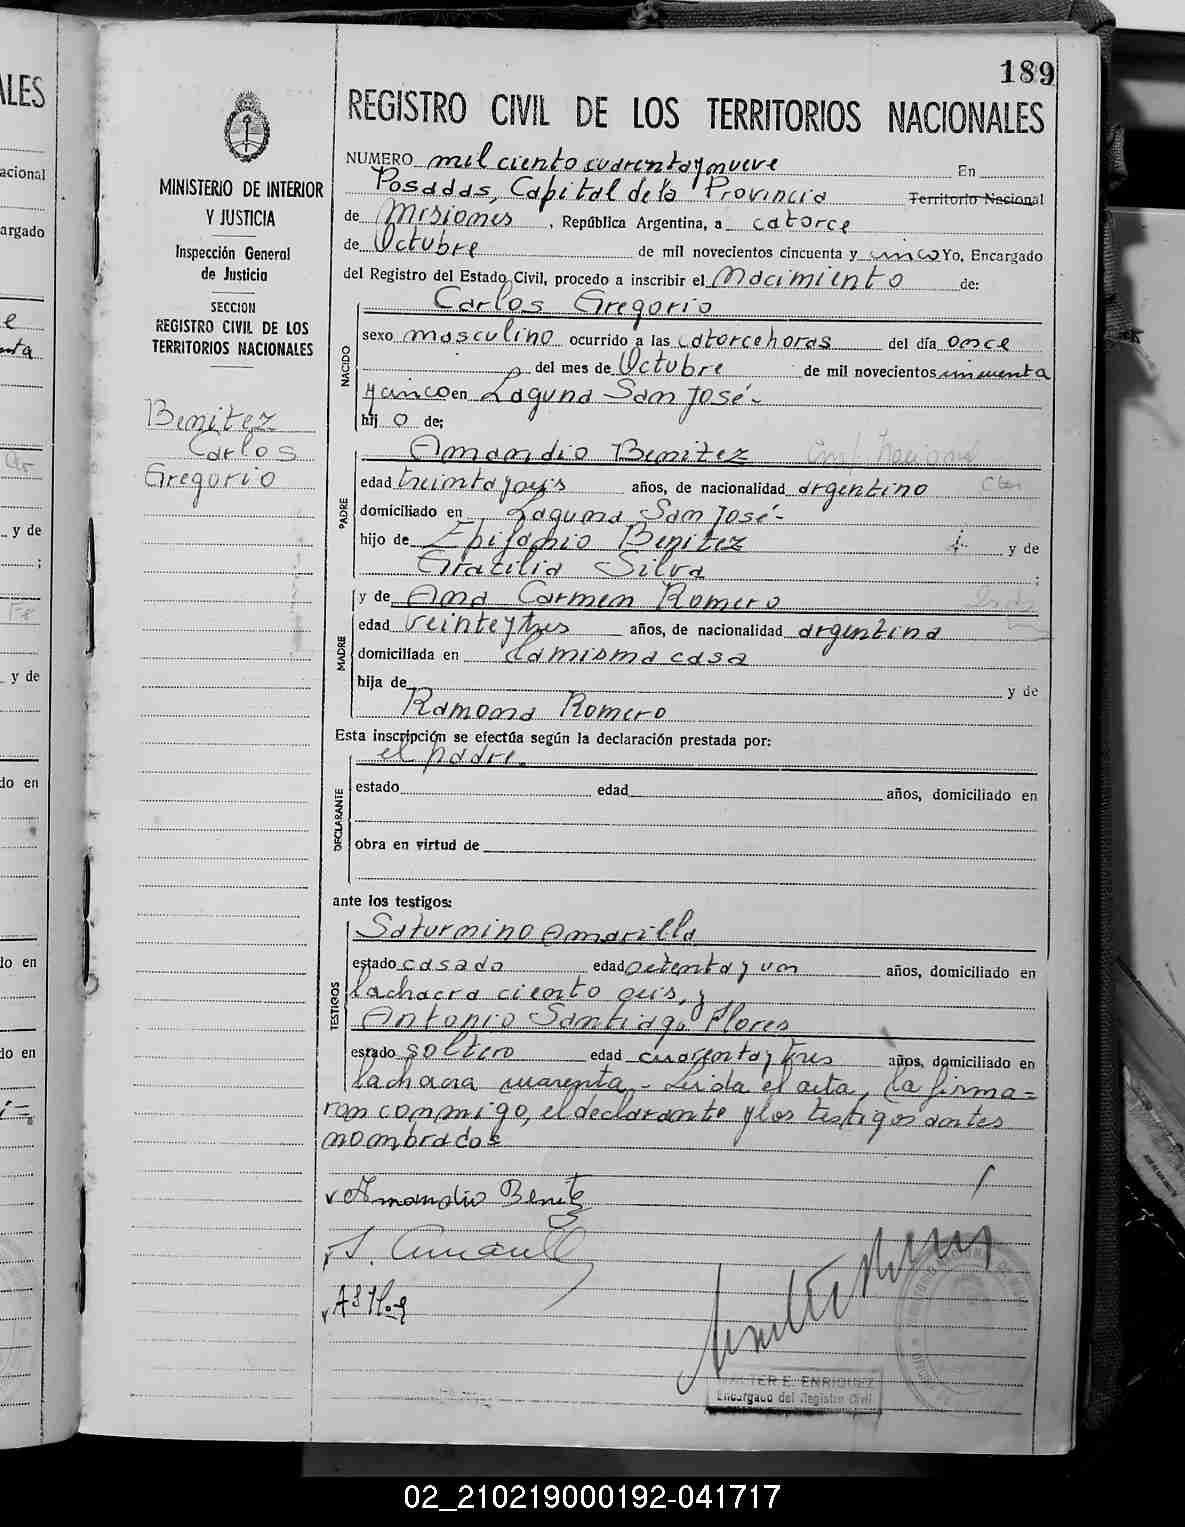 189
REGISTRO CIVIL DE LOS TERRITORIOS NACIONALES
MINISTERIO DE INTERIOR
Y JUSTICIA
Inspección General
de Justicia
SECCION
REGISTRO CIVIL DE LOS
TERRITORIOS NACIONALES
Benitez
Carlos
Gregorio
NUMERO mil ciento cuarenta y nueve En
Posadas, Capital de la Provincia Territorio Nacional
de Misiones, República Argentina, a catorce
de Octubre de mil novecientos cincuenta y cinco Yo, Encargado
del Registro del Estado Civil, procedo a inscribir el Nacimiento de:
Carlos Gregorio
NACIDO
sexo masculino ocurrido a las catorce horas del día once
del mes de Octubre de mil novecientos cincuenta
y cinco en Laguna San José-
hij o de;
Amandio Benitez
PADRE
edad treinta y seis años, de nacionalidad argentino
domiciliado en Laguna San José-
hijo de Epifanio Benitez y de
Gracilia Silva ;
y de Ana Carmen Romero
MADRE
edad veinte y tres años, de nacionalidad argentina
domiciliada en la misma casa
hija de y de
Ramona Romero
Esta inscripción se efectúa según la declaración prestada por:
el padre.
DECLARANTE
estado edad años, domiciliado en
obra en virtud de
ante los testigos:
Saturnino Amarilla
TESTIGOS
estado casado edad setenta y un años, domiciliado en
la chacra ciento seis, y
Antonio Santiago Flores
estado soltero edad cuarenta y tres años, domiciliado en
la chacra cuarenta - Leida el acta, la firma=
ron conmigo, el declarante y los testigos antes
nombrados
Amandio Benitez
WALTER E. ENRIQUEZ
Encargado del Registro Civil
02_210219000192-041717